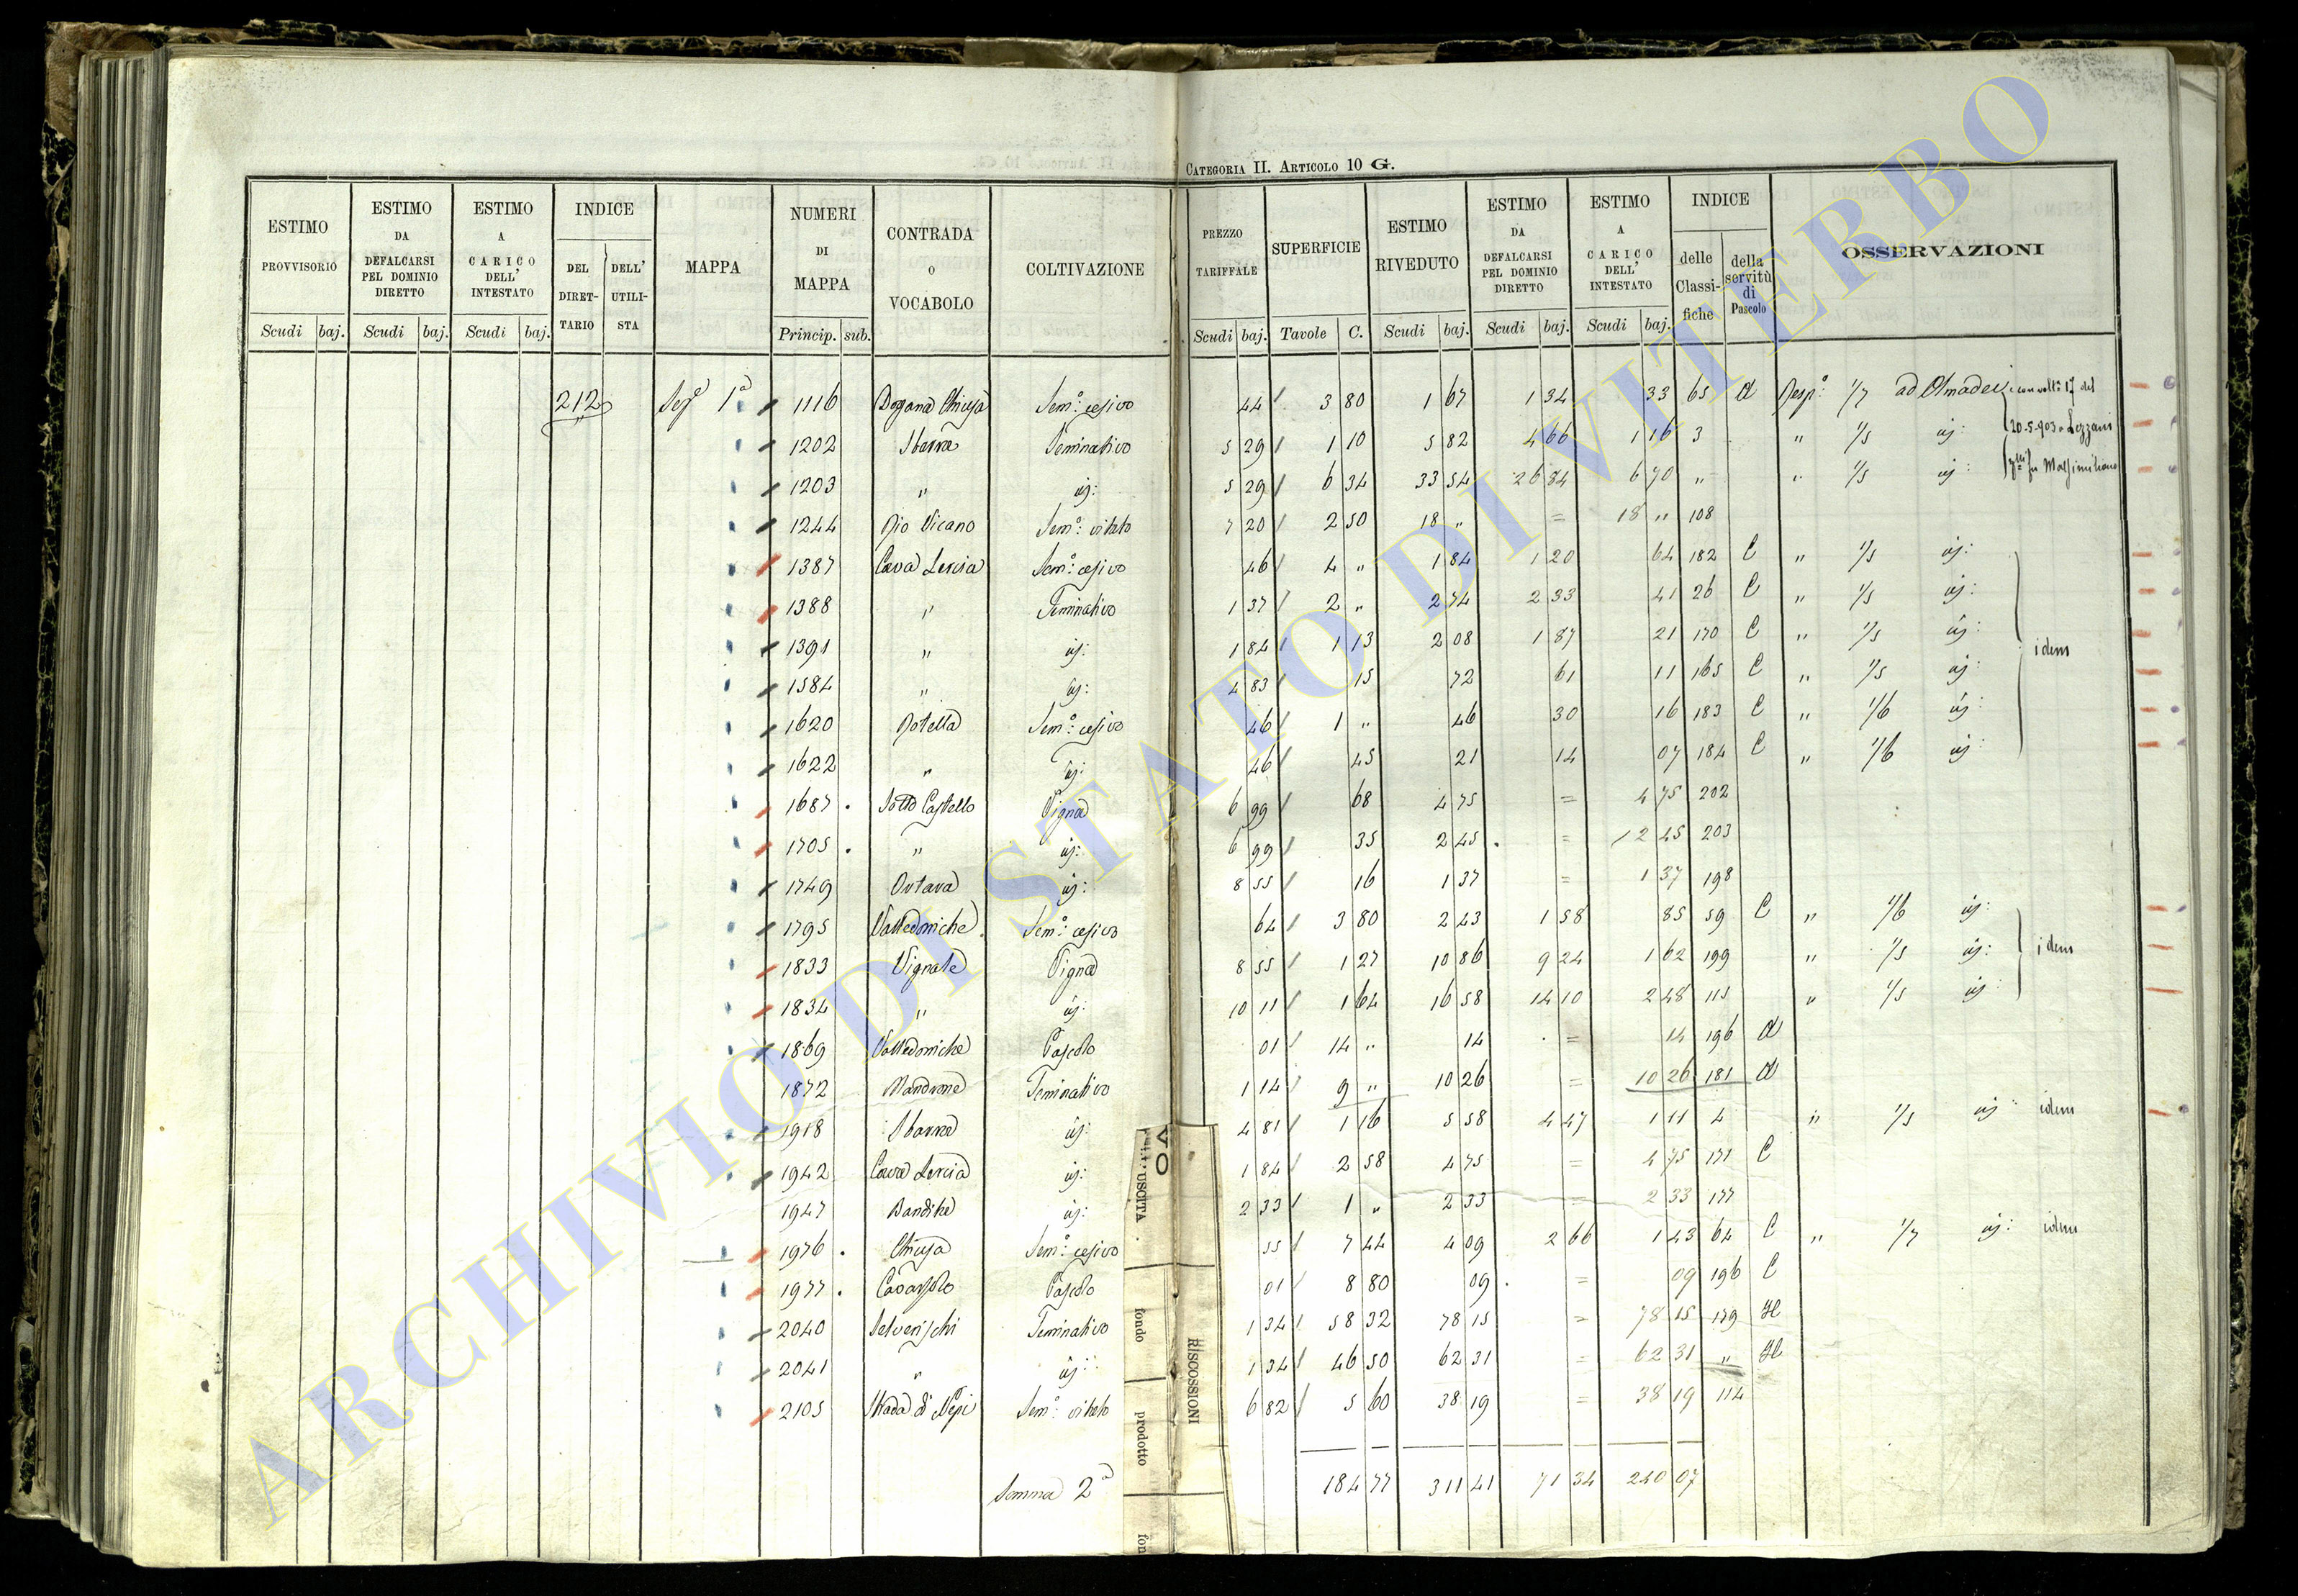 CATEGORIA II. ARTICOLO 10 G.
ESTIMO PROVVISORIO
ESTIMO DA DEFALCARSI PEL DOMINIO DIRETTO
ESTIMO A CARICO DELL' INTESTATO
INDICE
DEL DIRETTARIO
DELL' UTILISTA
MAPPA
NUMERI DI MAPPA
CONTRADA O VOCABOLO
COLTIVAZIONE
PREZZO TARIFFALE
SUPERFICIE
ESTIMO RIVEDUTO
ESTIMO DA DEFALCARSI PEL DOMINIO DIRETTO
ESTIMO A CARICO DELL' INTESTATO
INDICE
delle Classifiche
della servitù di Pascolo
OSSERVAZIONI
Scudi baj. Scudi baj. Scudi baj. Princip. sub. Scudi baj. Tavole C. Scudi baj. Scudi baj. Scudi baj.
212 Sez.ª 1ª 1116 Dogana Chiusa Sem.º cesivo 44 3 80 1 67 1 34 33 65 A Resp.º 1/7 ad Amadei
1202 Sbarra Seminativo 5 29 1 10 5 82 4 66 1 16 3 " 1/5 id: 20-5-903
1203 " id: 5 29 6 34 33 54 26 84 6 70 " " 1/5 id: Massimiliano
1244 Rio Vicano Sem.º vitato 7 20 2 50 18 " = 18 " 108
1387 Cava Lercia Sem.º cesivo 46 4 " 1 84 1 20 64 182 C " 1/5 id:
1388 " Seminativo 1 37 2 " 2 74 2 33 41 26 C " 1/5 id:
1391 " id: 1 84 1 13 2 08 1 87 21 170 C " 1/5 id: idem
1584 " id: 4 83 15 72 61 11 165 C " 1/5 id:
1620 Rotella Sem.º cesivo 46 1 " 46 30 16 183 C " 1/6 id:
1622 " id: 46 45 21 14 07 184 C " 1/6 id:
1687 Sotto Castello Vigna 6 99 68 4 75 = 4 75 202
1705 " id: 6 99 35 2 45 = 2 45 203
1749 Ortava id: 8 55 16 1 37 = 1 37 198
1795 Valledoniche Sem.º cesivo 64 3 80 2 43 1 58 85 59 C " 1/6 id:
1833 Vignale Vigna 8 55 1 27 10 86 9 24 1 62 199 " 1/5 id: idem
1834 " id: 10 11 1 64 16 58 14 10 2 48 115 " 1/5 id:
1869 Valledoniche Pascolo 01 14 " 14 = 14 196 A
1872 Mandrone Seminativo 1 14 9 " 10 26 = 10 26 181 A
1918 Sbarra id: 4 81 1 16 5 58 4 47 1 11 4 " 1/5 id: idem
1942 Cava Lercia id: 1 84 2 58 4 75 = 4 75 171 C
1947 Bandite id: 2 33 1 " 2 33 = 2 33 177
1976 Chiusa Sem.º cesivo 55 7 44 4 09 2 66 1 43 64 C " 1/7 id: idem
1977 Pascolo 01 8 80 09 = 09 196 C
2040 Seminativo 1 34 58 32 78 15 = 78 15 179
2041 " id: 1 34 46 50 62 31 = 62 31 "
2105 Strada di Nepi Sem.º vitato 6 82 5 60 38 19 = 38 19 114
Somma 2ª 184 77 311 41 71 34 240 07
USCITA
fondo
prodotto
RISCOSSIONI
ARCHIVIO DI STATO DI VITERBO